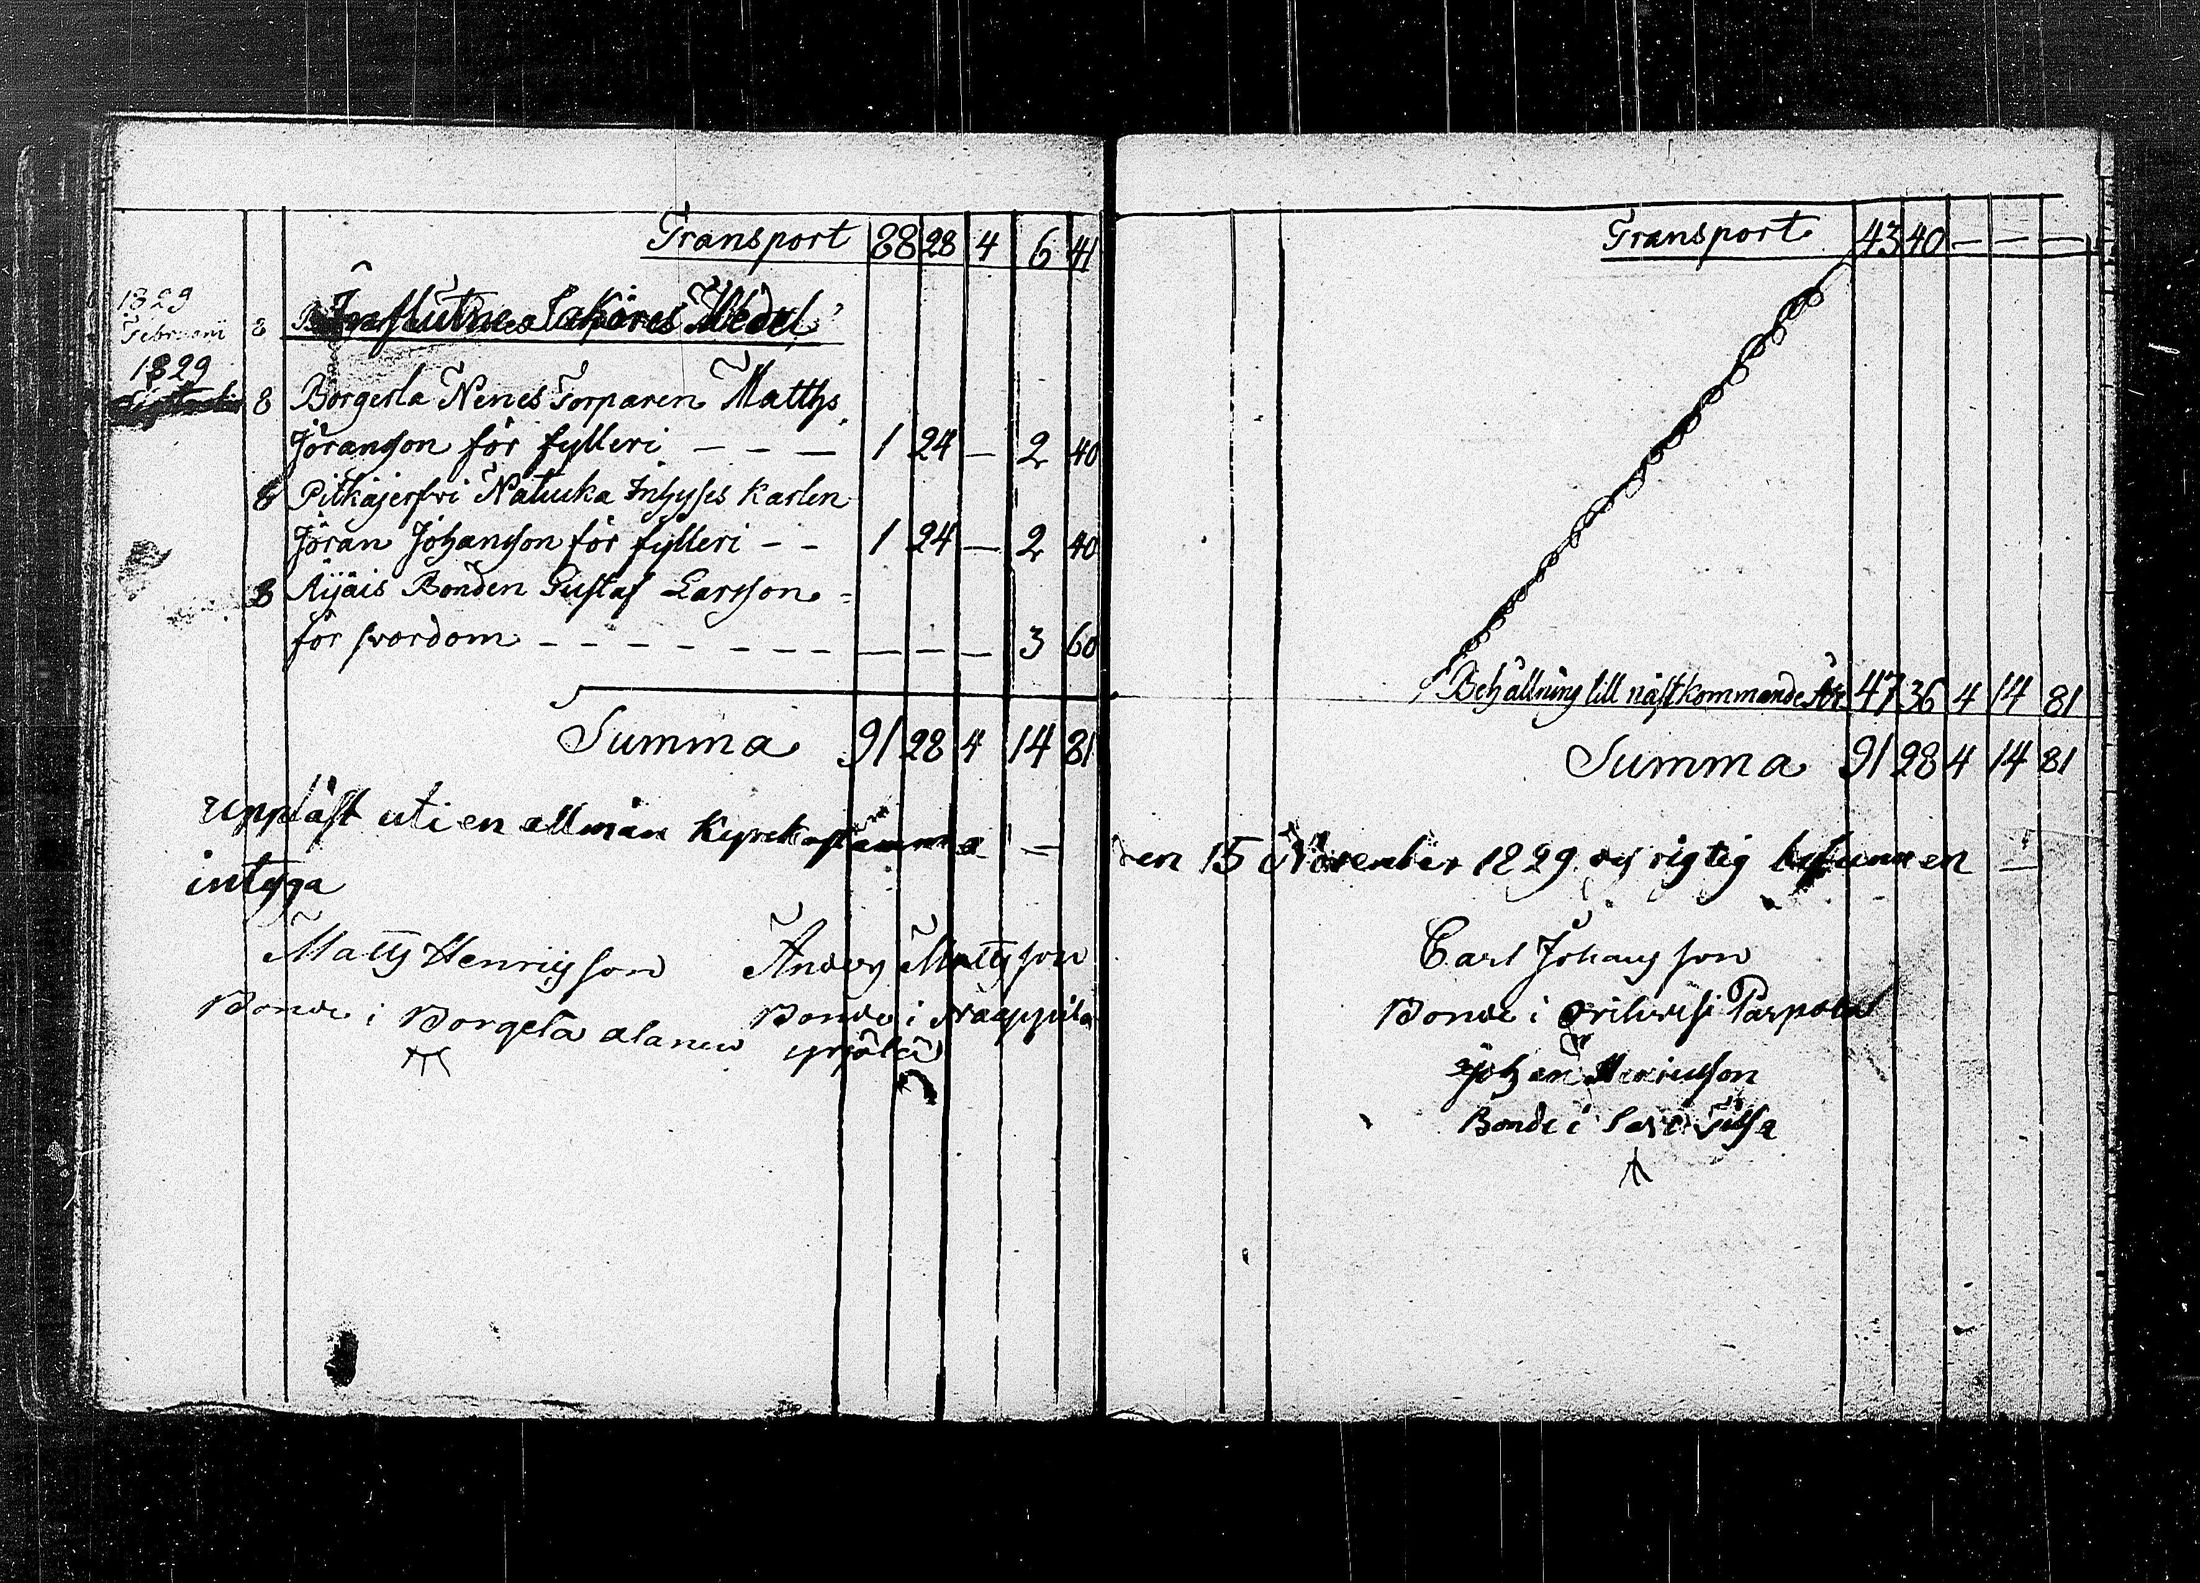 Transport 88 28 4 6 41
1829
Februari 8 Influtne Saköres Medel
1829
8 Borgerla Nenes Torparen Matths
Jöranson för fylleri — — — 1 24 — 2 40
8 Pitkäjerfvi Natucka Inhyses Karlen
Jöran Johanson för fylleri – – 1 24 — 2 40
8 Äijäis Bonden Gustaf Larsson
för svordom – – – – – – – — — — 3 60
Summa 91 28 4 14 81
Uppläst uti en allmän Kyrckostämma —
intyga
Matts Henrigsson Anders Mattsson
Bonde i Borgela alanen Bonde i Naappila
yrjölä
Transport 43 40 — — —
Behållning till nästkommande År 47 36 4 14 81
Summa 91 28 4 14 81
den 15 November 1829 och rigtig befunnen —
Carl Johansson
Bonde i Parpola
Johan Henricsson
Bonde i